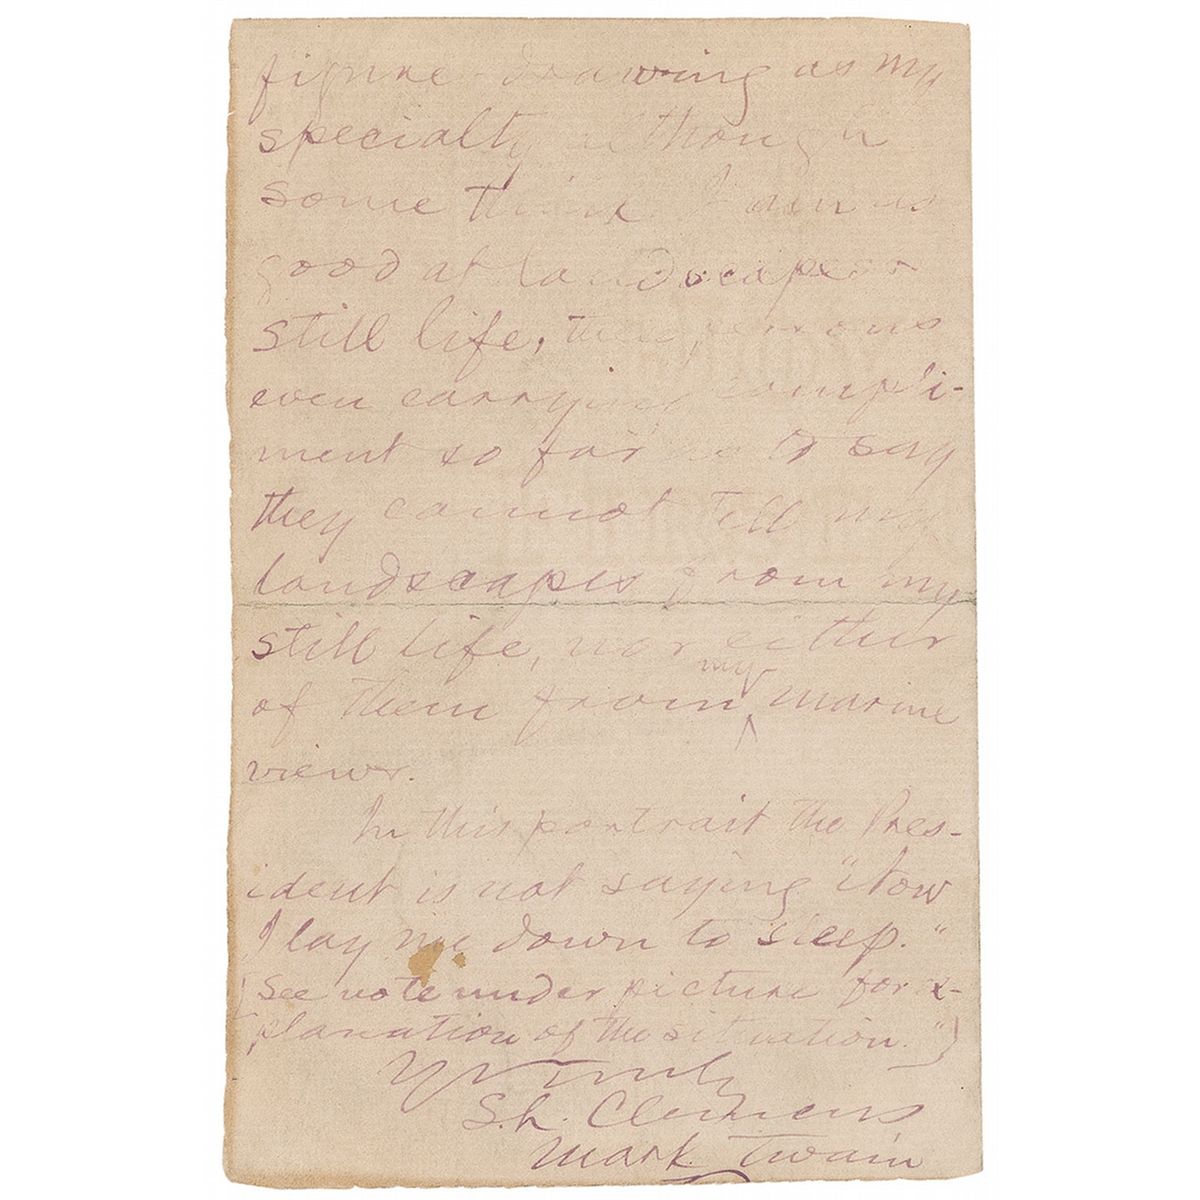 figure-drawing as my
specialty although
some think I am as
good at landscape &
still life, the generous
even carrying compli-
ment so far as to say
they cannot tell my
landscapes from my
still life, nor either
of them from my marine
views.
In this portrait the Pres-
ident is not saying "Now
I lay me down to sleep."
(See note under picture for ex-
planation of the situation.")
Yr Truly
S. L. Clemens
Mark Twain